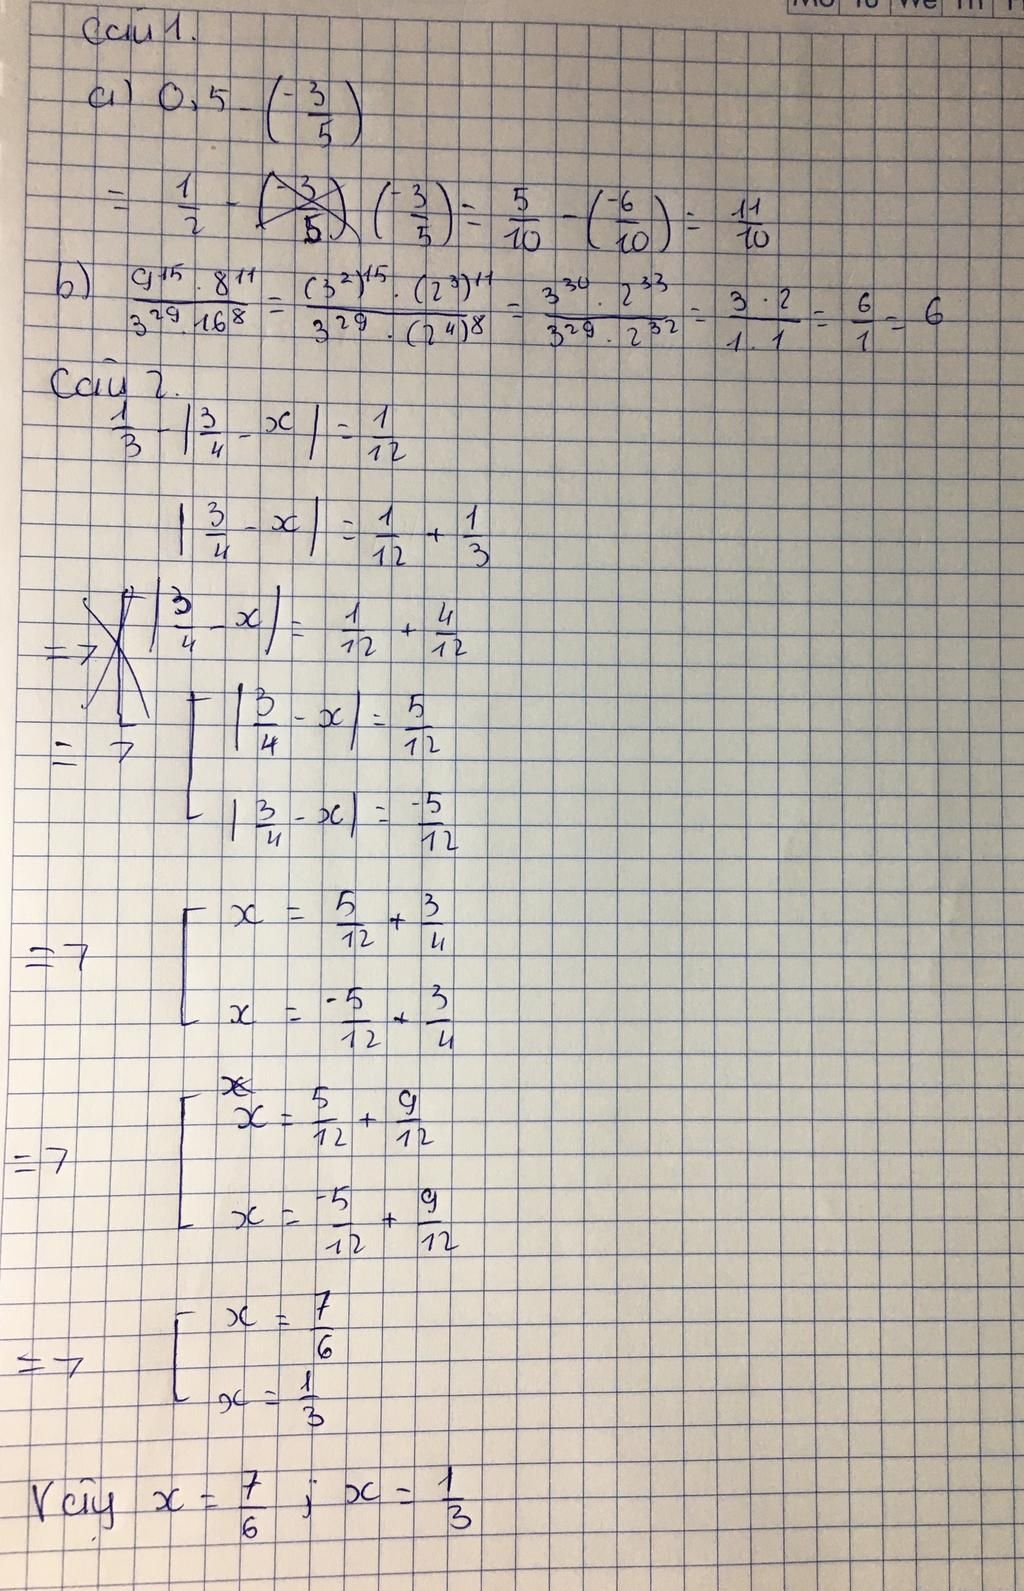 Mo Tu We Th F
Câu 1.
a) 0,5 - (-3/5)
= 1/2 - (-3/5) (-3/5) = 5/10 - (-6/10) = 11/10
b) 9^15 . 8^11 / 3^29 . 16^8 = (3^2)^15 . (2^3)^11 / 3^29 . (2^4)^8 = 3^30 . 2^33 / 3^29 . 2^32 = 3 . 2 / 1 . 1 = 6/1 = 6
Câu 2.
1/3 - |3/4 - x| = 1/12
|3/4 - x| = 1/12 + 1/3
=> [ |3/4 - x| = 1/12 + 4/12
=> [ |3/4 - x| = 5/12
|3/4 - x| = -5/12
=> [ x = 5/12 + 3/4
x = -5/12 + 3/4
x
=> [ x = 5/12 + 9/12
x = -5/12 + 9/12
=> [ x = 7/6
x = 1/3
Vậy x = 7/6 ; x = 1/3